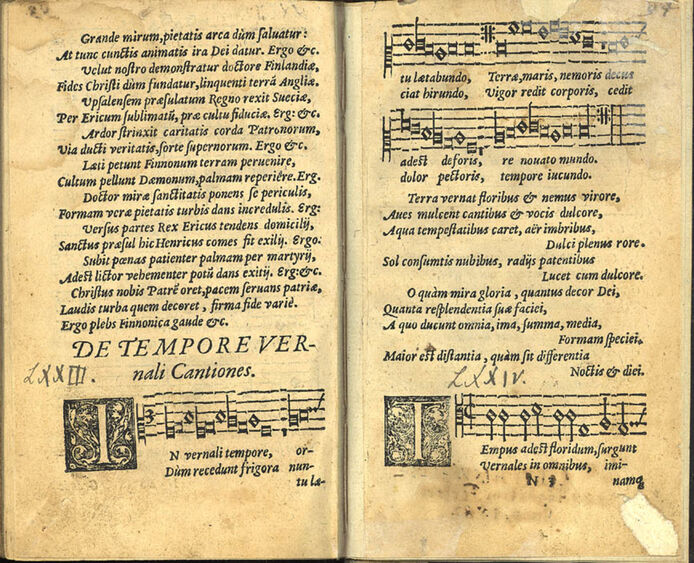 Grande mirum, pietatis arca dùm saluatur:
At tunc cunctis animatis ira Dei datur. Ergo &c.
Velut nostro demonstratur doctore Finlandiæ,
Fides Christi dùm fundatur, linquenti terrâ Angliæ.
Vpsalensem præsulatum Regno rexit Sueciæ,
Per Ericum sublimatũ, præ cultu fiduciæ, Erg: &c.
Ardor strinxit caritatis corda Patronorum,
Via ducti veritatis, sorte supernorum. Ergo &c.
Læti petunt Finnonum terram peruenire,
Cultum pellunt Dæmonum, palmam reperiêre. Erg.
Doctor miræ sanctitatis ponens se periculis,
Formam veræ pietatis turbis dans incredulis. Erg:
Versus partes Rex Ericus tendens domicilij,
Sanctus præsul hic Henricus comes fit exilij. Ergo:
Subit pœnas patienter palmam per martyrij,
Adest lictor vehementer potiũ dans exitij. Erg: &c.
Christus nobis Patrẽ oret, pacem seruans patriæ,
Laudis turba quem decoret, firma fide variè.
Ergo plebs Finnonica gaude &c.
DE TEMPORE VER-
nali Cantiones.
LXXIII.
IN vernali tempore, or-
Dùm recedunt frigora nun-
tu læ-
tu lætabundo, Terræ, maris, nemoris decus
ciat hirundo, Vigor redit corporis, cedit
adest deforis, re nouato mundo.
dolor pectoris, tempore iucundo.
Terra vernat floribus & nemus virore,
Aues mulcent cantibus & vocis dulcore,
Aqua tempestatibus caret, aër imbribus,
Dulci plenus rore.
Sol consumtis nubibus, radijs patentibus
Lucet cum dulcore.
O quàm mira gloria, quantus decor Dei,
Quanta resplendentia suæ faciei,
A quo ducunt omnia, ima, summa, media,
Formam speciei.
Maior est distantia, quàm sit differentia
Noctis & diei.
LXXIV.
TEmpus adest floridum, surgunt
Vernales in omnibus, imi-
namq